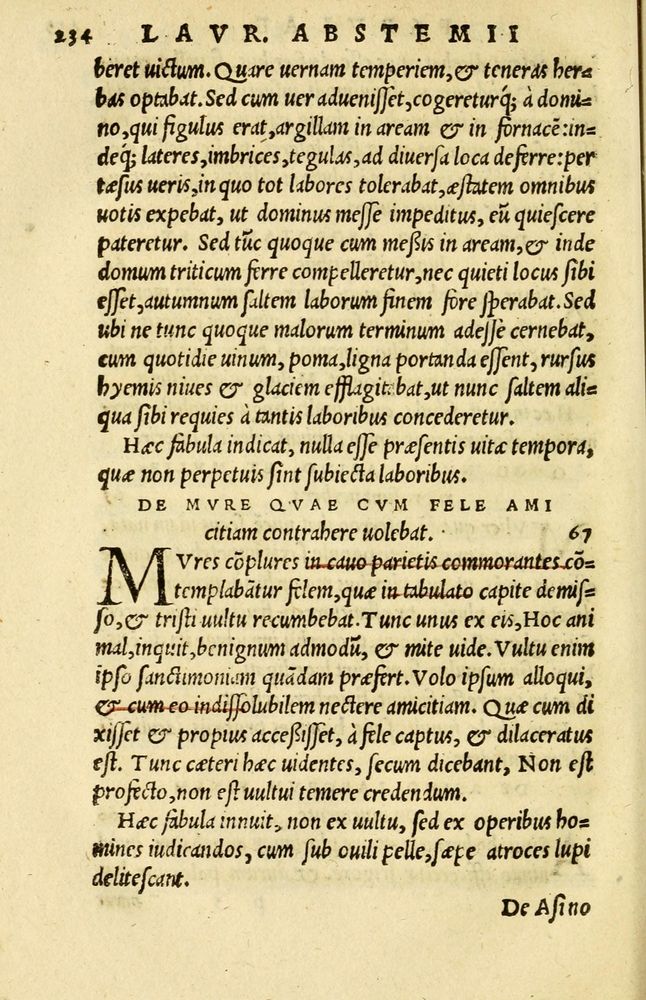 234 LAVR. ABSTEMII
beret uictum. Quare uernam temperiem, & teneras her=
bas optabat. Sed cum uer adueniſſet, cogereturq́; à domi=
no, qui figulus erat, argillam in aream & in fornacē: in=
deq́; lateres, imbrices, tegulas, ad diuerſa loca deferre: per
tæſus ueris, in quo tot labores tolerabat, æſtatem omnibus
uotis expebat, ut dominus meſſe impeditus, eū quieſcere
pateretur. Sed tūc quoque cum meßis in aream, & inde
domum triticum ferre compelleretur, nec quieti locus ſibi
eſſet, autumnum ſaltem laborum finem fore ſperabat. Sed
ubi ne tunc quoque malorum terminum adeſſe cernebat,
cum quotidie uinum, poma, ligna portanda eſſent, rurſus
hyemis niues & glaciem efflagitabat, ut nunc ſaltem ali=
qua ſibi requies à tantis laboribus concederetur.
Hæc fabula indicat, nulla eſſe præſentis uitæ tempora,
quæ non perpetuis ſint ſubiecta laboribus.
DE MVRE QVAE CVM FELE AMI
citiam contrahere uolebat. 67
MVres cōplures in cauo parietis commorantes cō=
templabātur felem, quæ in tabulato capite demiſ=
ſo, & triſti uultu recumbebat. Tunc unus ex eis, Hoc ani
mal, inquit, benignum admodū, & mite uide. Vultu enim
ipſo ſanctimoniam quādam præfert. Volo ipſum alloqui,
& cum eo indiſſolubilem nectere amicitiam. Quæ cum di
xiſſet & propius acceßiſſet, à fele captus, & dilaceratus
eſt. Tunc cæteri hæc uidentes, ſecum dicebant, Non eſt
profecto, non eſt uultui temere credendum.
Hæc fabula innuit, non ex uultu, ſed ex operibus ho=
mines iudicandos, cum ſub ouili pelle, ſæpe atroces lupi
deliteſcant.
De Aſino